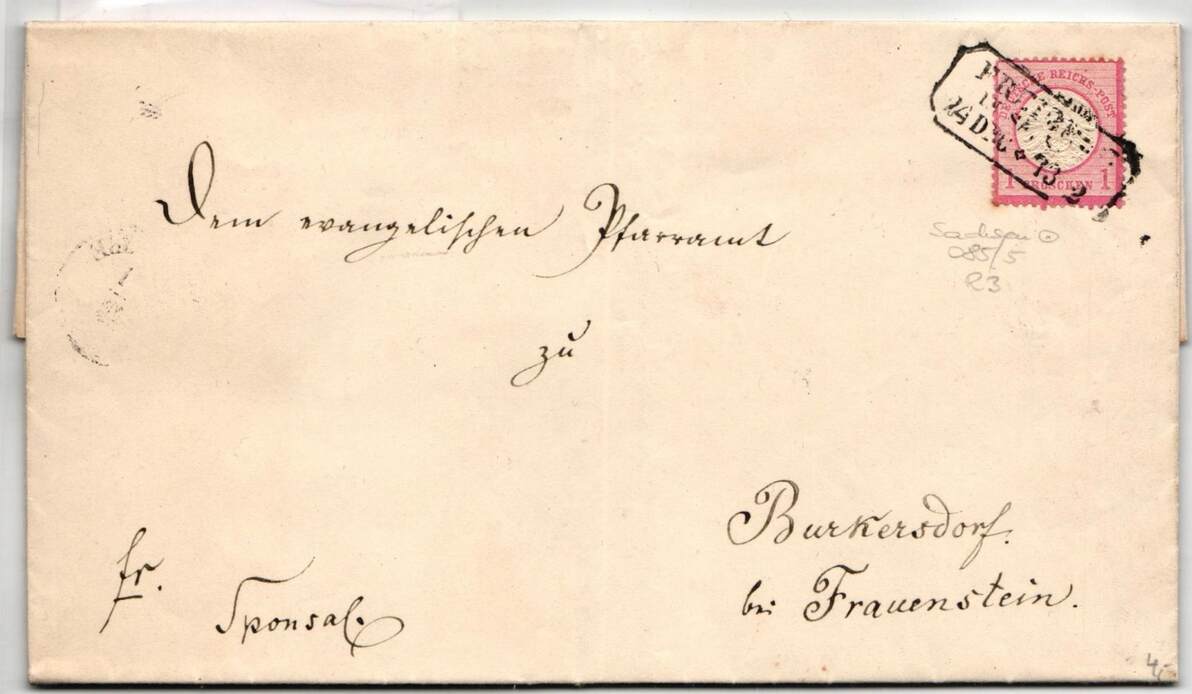 DEUTSCHE REICHS-POST
1 GROSCHEN 1
14 DEC 73 2
Sachsen
085/5
R3
Dem evangelischen Pfarramt
zu
Burkersdorf.
bei Frauenstein.
fr.
Sponsal.
4,-